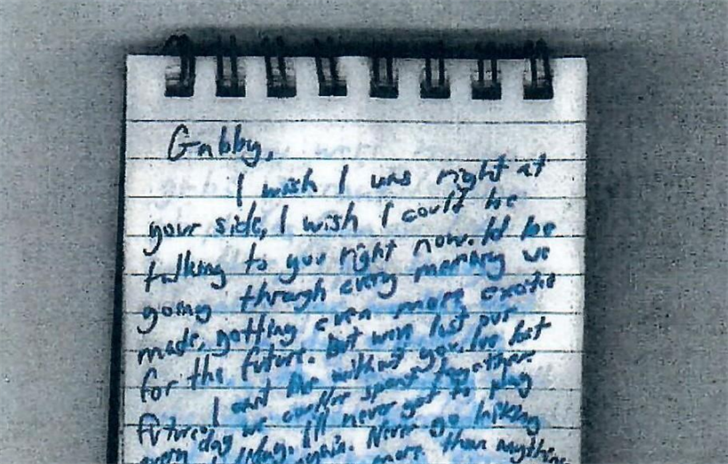 Gabby,
I wish I was right at
your side, I wish I could be
talking to you right now. Id be
going through every memory we
made, getting even more excited
for the future. But we lost our
future. I cant live without you. Ive lost
every day we could've spent together
I'll never get to play
again. Never go hiking
more than anything